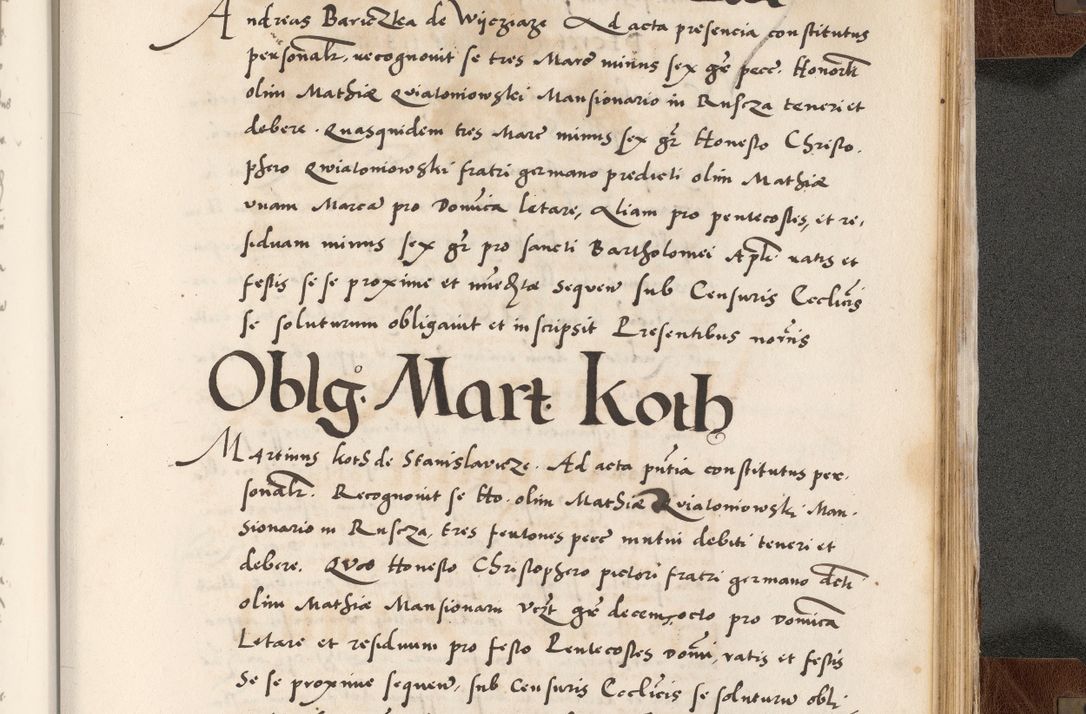 Andreas Bariczka de Wijcziaze Ad acta presencia constitutus
personalr. recognouit se tres Marc minus sex gr pecc. Honorli
olim Mathiæ Qviatoniowski Mansionario in Ruscza teneri et
debere. Quasquidem tres Marc minus sex gr Honesto Christo-
phero Qwiatoniowski fratri germano predicti olim Mathiæ
vnam Marca pro Domica letare, Aliam pro pentecostes, et re-
siduam minus sex gr pro sancti Bartholomei Apli ratis et
festis se se proxime et immediate sequen sub Censuris Ecclicis
se soluturum obligauit et inscripsit Presentibus
Oblg. Mart. Koth
Martinus Koth de Stanislawicze. Ad acta pntia constitutus per-
sonalr. Recognouit se Ho. olim Mathiæ Qviatoniowski Man-
sionario in Ruscza, tres fertones pecc mutui debiti teneri et
debere. Quos Honesto Christophero pictori fratri germano dcti
olim Mathiæ Mansionarii vczt gr decem, octo pro Domica
Letare et residuum pro festo Pentecostes ratis et festis
Se se proxime sequen, sub Censuris Ecclicis se soluturu obli-